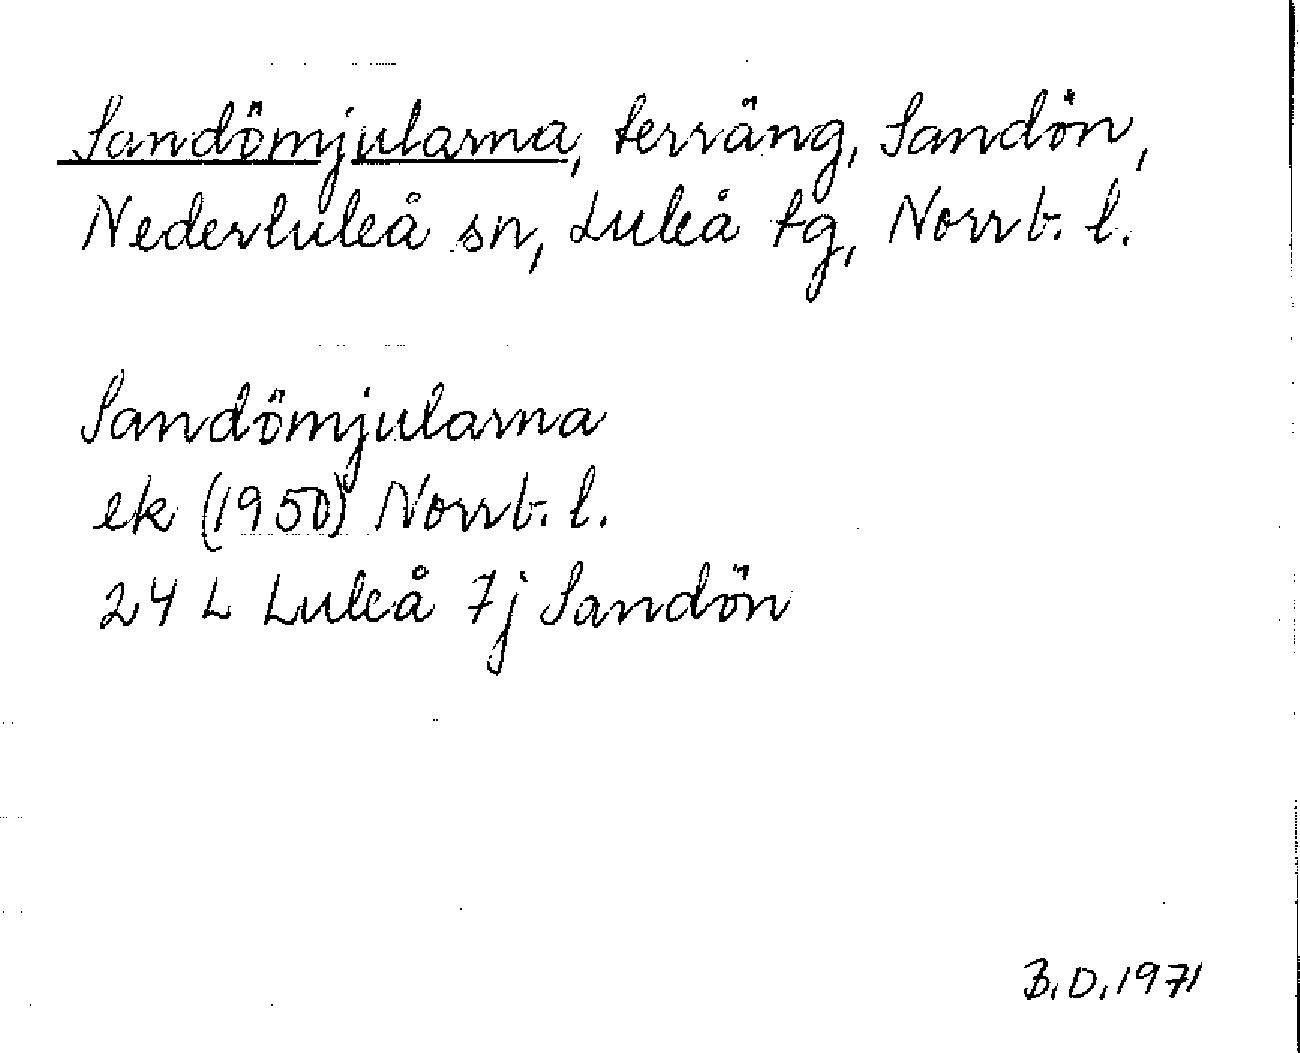 Sandömjularna, terräng, Sandön,
Nederluleå sn, Luleå tg, Norrb. l.
Sandömjularna
ek (1950) Norrb. l.
24 L Luleå 7j Sandön
B.D. 1971